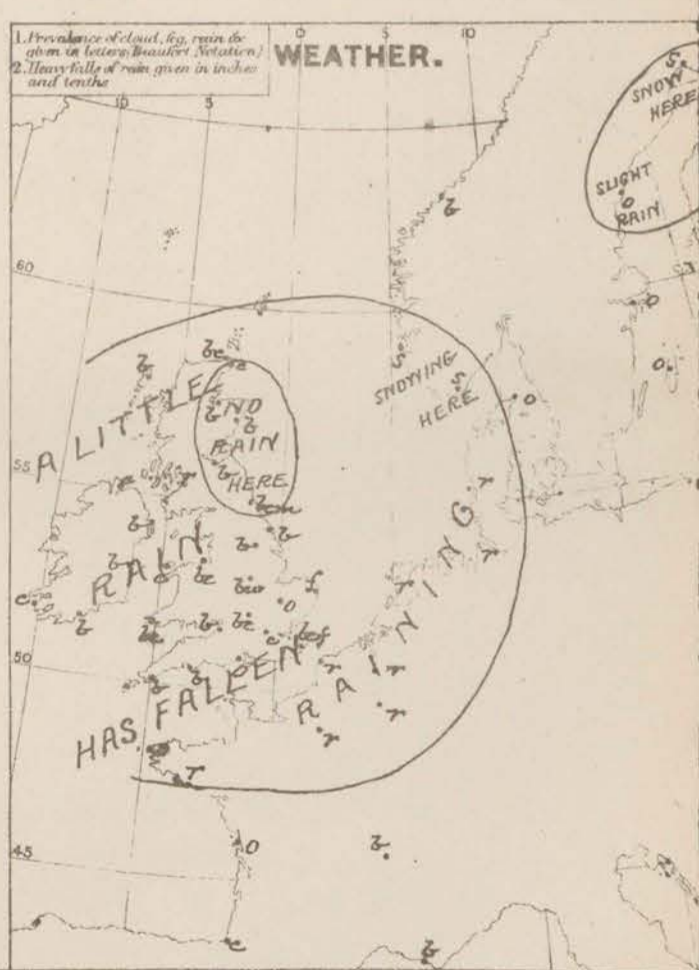 1. Prevalence of cloud, fog, rain &c
given in letters (Beaufort Notation)
2. Heavy falls of rain given in inches
and tenths
WEATHER.
10 5 0 5 10
SNOW
HERE
SLIGHT
RAIN
60
SNOWING
HERE
A LITTLE
RAIN
HAS FALLEN
NO
RAIN
HERE
55
RAINING
50
45